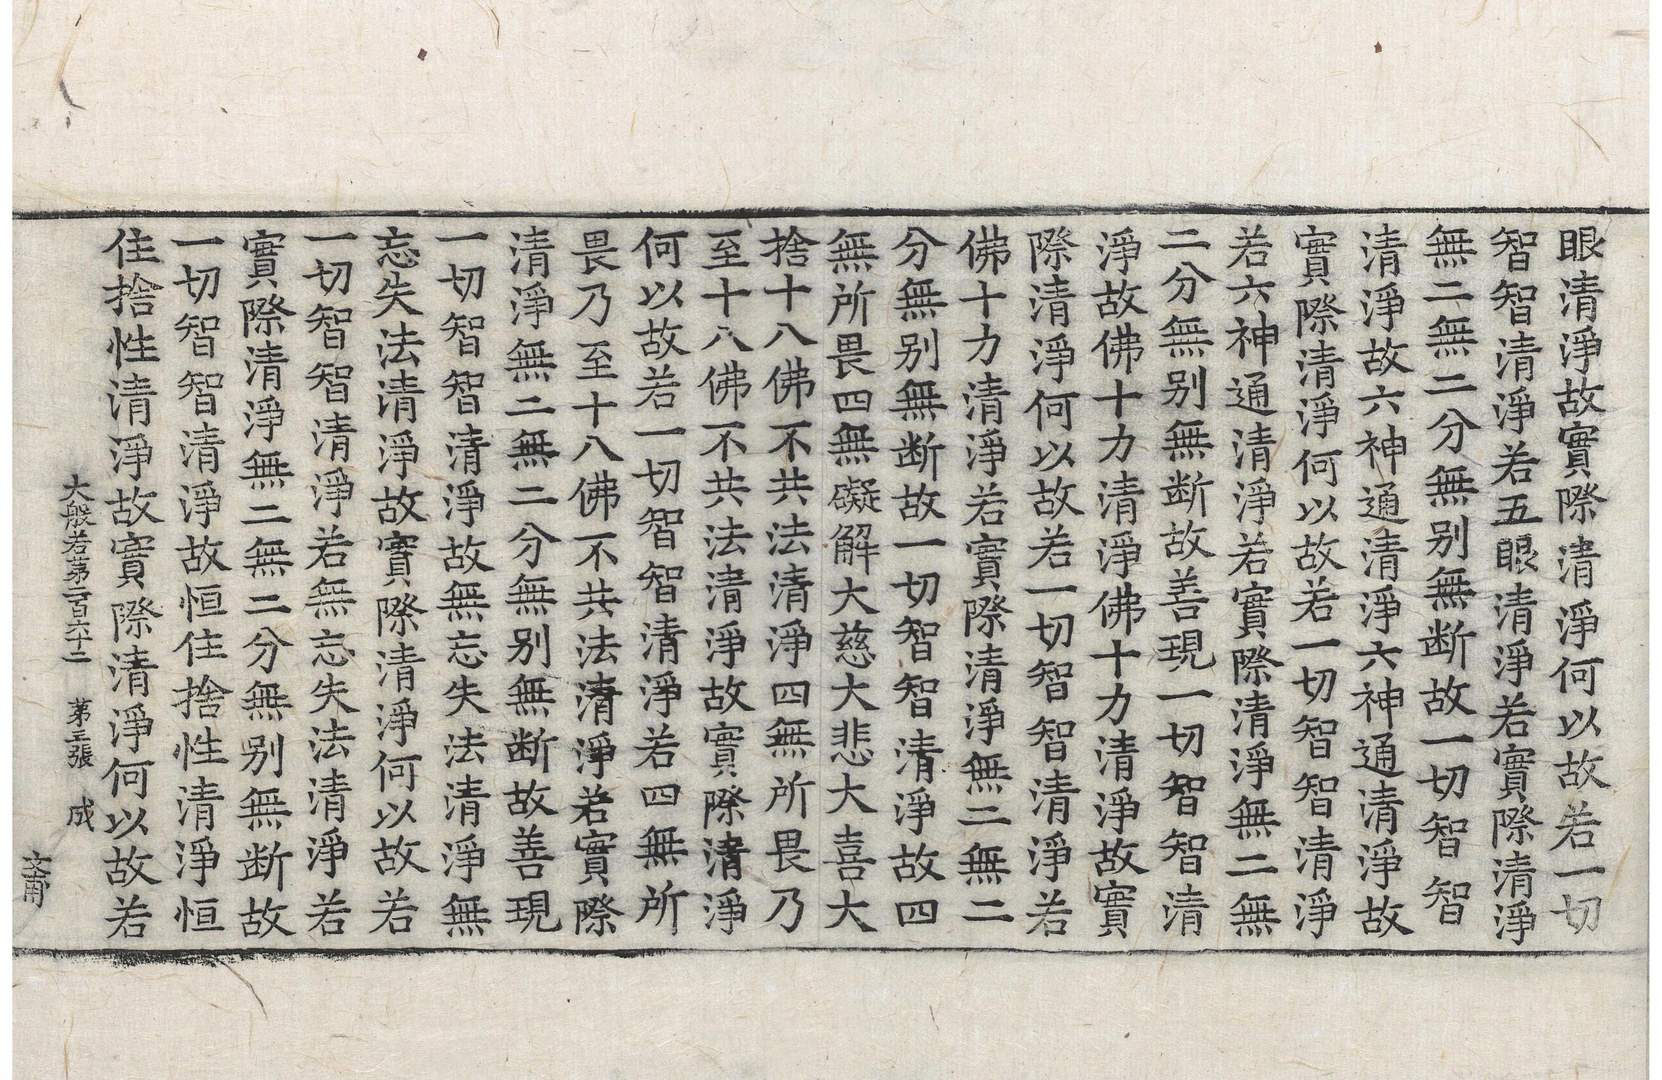 眼清淨故實際清淨何以故若一切
智智清淨若五眼清淨若實際清淨
無二無二分無別無断故一切智智
清淨故六神通清淨六神通清淨故
實際清淨何以故若一切智智清淨
若六神通清淨若實際清淨無二無
二分無別無断故善現一切智智清
淨故佛十力清淨佛十力清淨故實
際清淨何以故若一切智智清淨若
佛十力清淨若實際清淨無二無二
分無別無断故一切智智清淨故四
無所畏四無礙解大慈大悲大喜大
捨十八佛不共法清淨四無所畏乃
至十八佛不共法清淨故實際清淨
何以故若一切智智清淨若四無所
畏乃至十八佛不共法清淨若實際
清淨無二無二分無別無断故善現
一切智智清淨故無忘失法清淨無
忘失法清淨故實際清淨何以故若
一切智智清淨若無忘失法清淨若
實際清淨無二無二分無別無断故
一切智智清淨故恒住捨性清淨恒
住捨性清淨故實際清淨何以故若
大般若第二百六十二 第三張 成
文甫